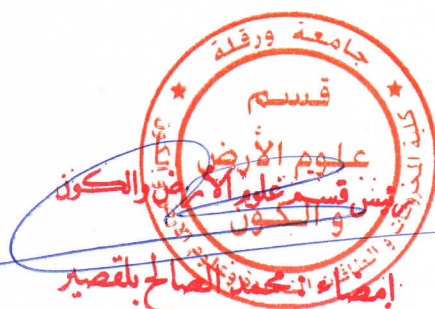 جامعة ورقلة
قسم
علوم الأرض
و الكون
رئيس قسم علوم الأرض والكون
إمضاء: محمد الصالح بلقصير